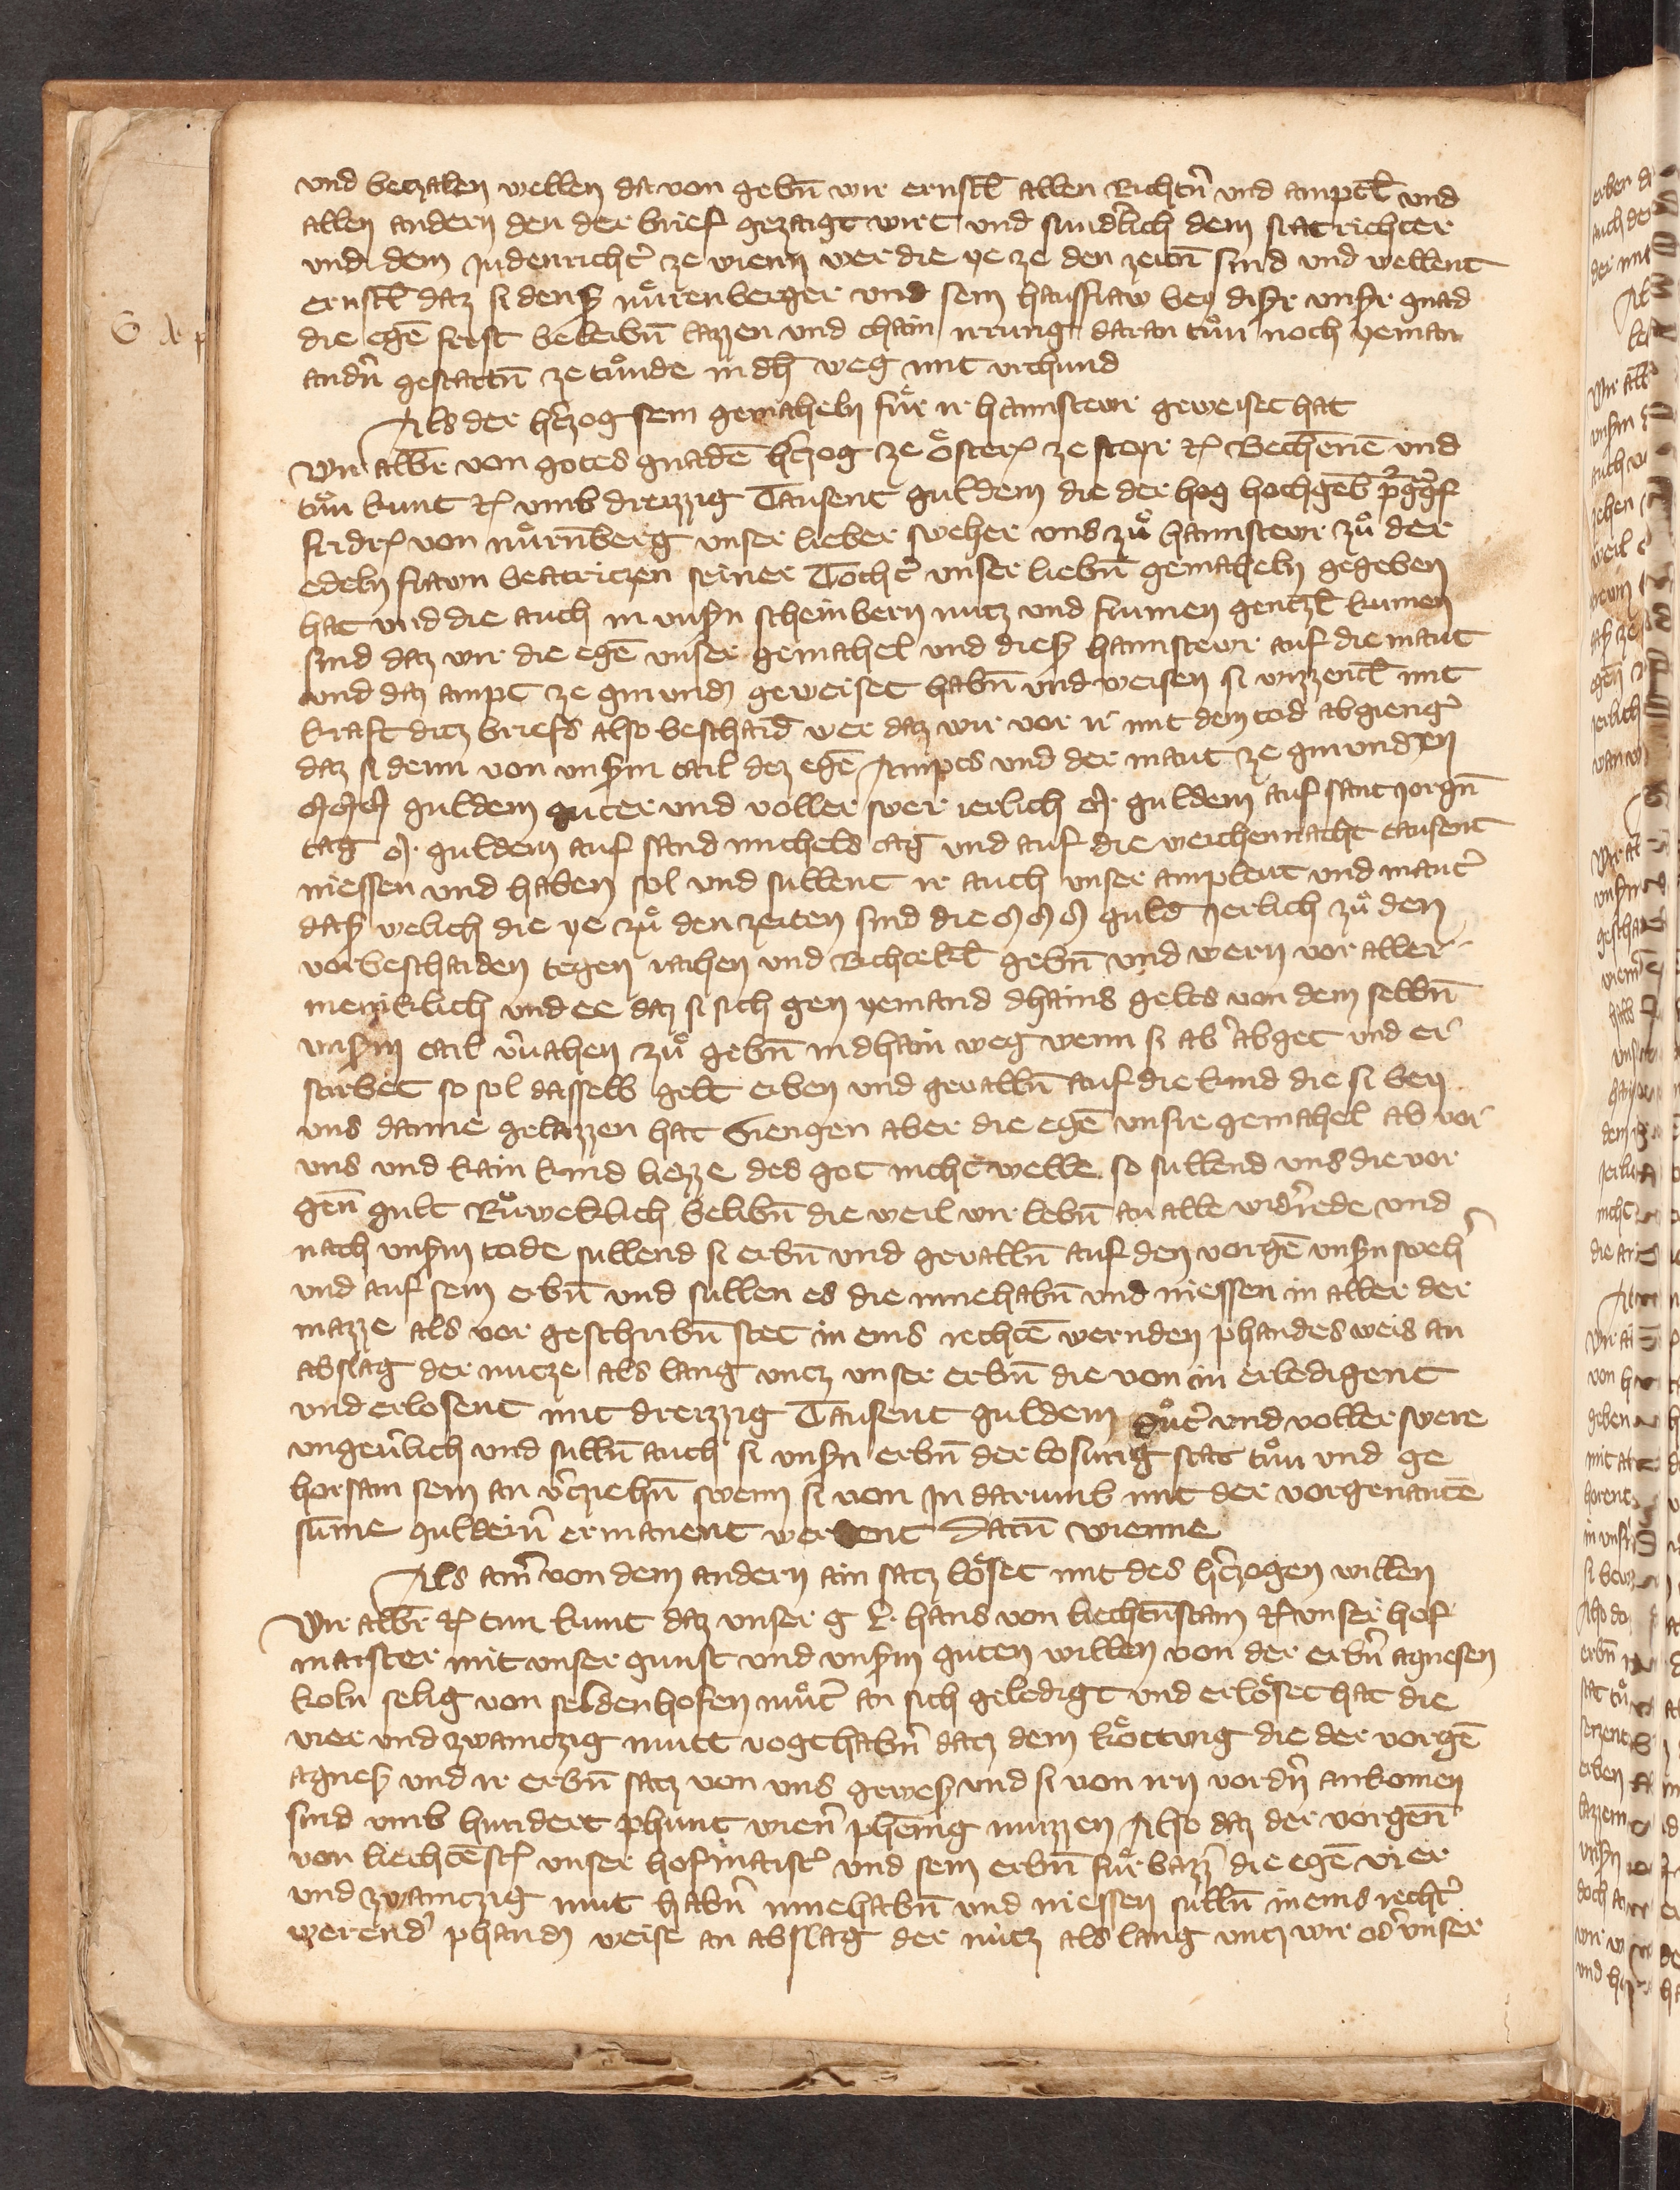 und beczalen wellen da von gebn̄ wir ernstl̄ allen Richtn̄ und amptl̄ und
allen andern den der brief geczaigt wirt und sundlich dem statrichter
und dem Judenricht͛ ze wienn wer die ye ze den zeitn̄ sind und wellent
ernstl̄ daz si dens nuͤrenberger und sein hausfraw bey diser unsr gnad
die egē frist beleibn̄ lazzen und chain irrung daran tuͦn noch yeman
andn̄ gestattn̄ ze tuͦnde in dh weg mit urchund
Als der h͛czog sein gemaheln fuͤr ir haimsteur geweiset hat
Wir albr̄ von gotes gnadē h͛czog ze oͤsterr ze steyr ꝛc Bechēnē und
tuͦn kunt ꝛc umb dreizzig Tausent guldein die der hog hochgeb purggͣf
fridr von nuͦrnberg unser lieber sweher uns zuͦ haimsteur zuͦ der
edeln frawn beatriczen seiner Tocht͛ unser liebn̄ gemaheln gegeben
hat und die auch in unsn scheinbern nucz und frumen genczl̄ kumen
sind daz wir die egē unser gemahel und dies haimsteur auf die maut
und daz ampt ze gmunden geweiset habn̄ und weisen si wizzentl̄ mit
kraft dicz briefs also beschaid wer daz wir vor ir mit dem tod abgieng͛
daz si denn von unsm tail dez egē Amptes und der maut ze gmunden
MMM guldein guter und voller swer ierlich M guldein auf sant Jorgn̄
tag M guldein auf sand michels tag und auf die weichennacht tausent
niessen und haben sol und sullent ir auch unser amptleut und maut͛
das welich die ye zuͦ den zeiten sind die MMM guld Jerlich zuͦ den
vorbeschaiden tegen raihen und Richtekl̄ gebn̄ und wern vor aller
meniklich und ee daz si sich gen yemand dhains gelts von dem selbn̄
unsm tail v͛vahen zuͦ gebn̄ in dhain weg wenn si ab͛ abget und er
starbet so sol dasselb gelt erben und gevalln̄ auf die kind die si bey
uns danne gelazzen hat Giengen aber die egē unser gemahel ab vor
uns und kain kind liezze des got nicht welle so sullend uns die vor
gen̄ gult Ruͦweklich belibn̄ die weil wir lebn̄ an alle widrede und
nach unsm tode sullend si erbn̄ und gevalln̄ auf den vorgē unsn sweh͛
und auf sein erbn̄ und sullen es die innehabn̄ und niessen in aller der
mazze als vor geschribn̄ stet in eins rechtē wernden phandes weis an
abslag der nucze als lang uncz unser erbn̄ die von in erledigent
und erlosent mit dreizzig Tausent guldein guͦt͛ und voller swere
ungeu͛lich und sulln̄ auch si unsn erbn̄ der losung stat tuͦn und ge
horsam sein an v͛cziehn̄ swenn si von in darumb mit der vorgenantē
sūme guldein͛ ermanent werdent Datū wienne
Als ain͛ von dem andern ain satz loͤset mit des h͛czogen willen
Wir albr̄ ꝛc tun kunt daz unser g L hans von liechtn̄stain ꝛc unser hof
maister mit unser gunst und unsm guten willen von der erbn̄ agnesen
koln selig von seldenhofen muͦt͛ an sich geledigt und erloͤset hat die
vier und zwainczig mutt vogthabn̄ dacz dem koͤttung die der vorgē
agnes und ir erbn̄ satz von uns gewes und si von irn vordn̄ ankomen
sind umb hundert phunt wien͛ phēnig munzzen Also daz der vorgen̄
von liechtēst unser hofmaist͛ und sein erbn̄ fuͤrbazz͛ die egē vier
und zwainczig mut habn̄ innehabn̄ und niessen sulln̄ in eins recht͛
werend͛ phandn weise an abslag der nucz als lang uncz wir od͛ unser